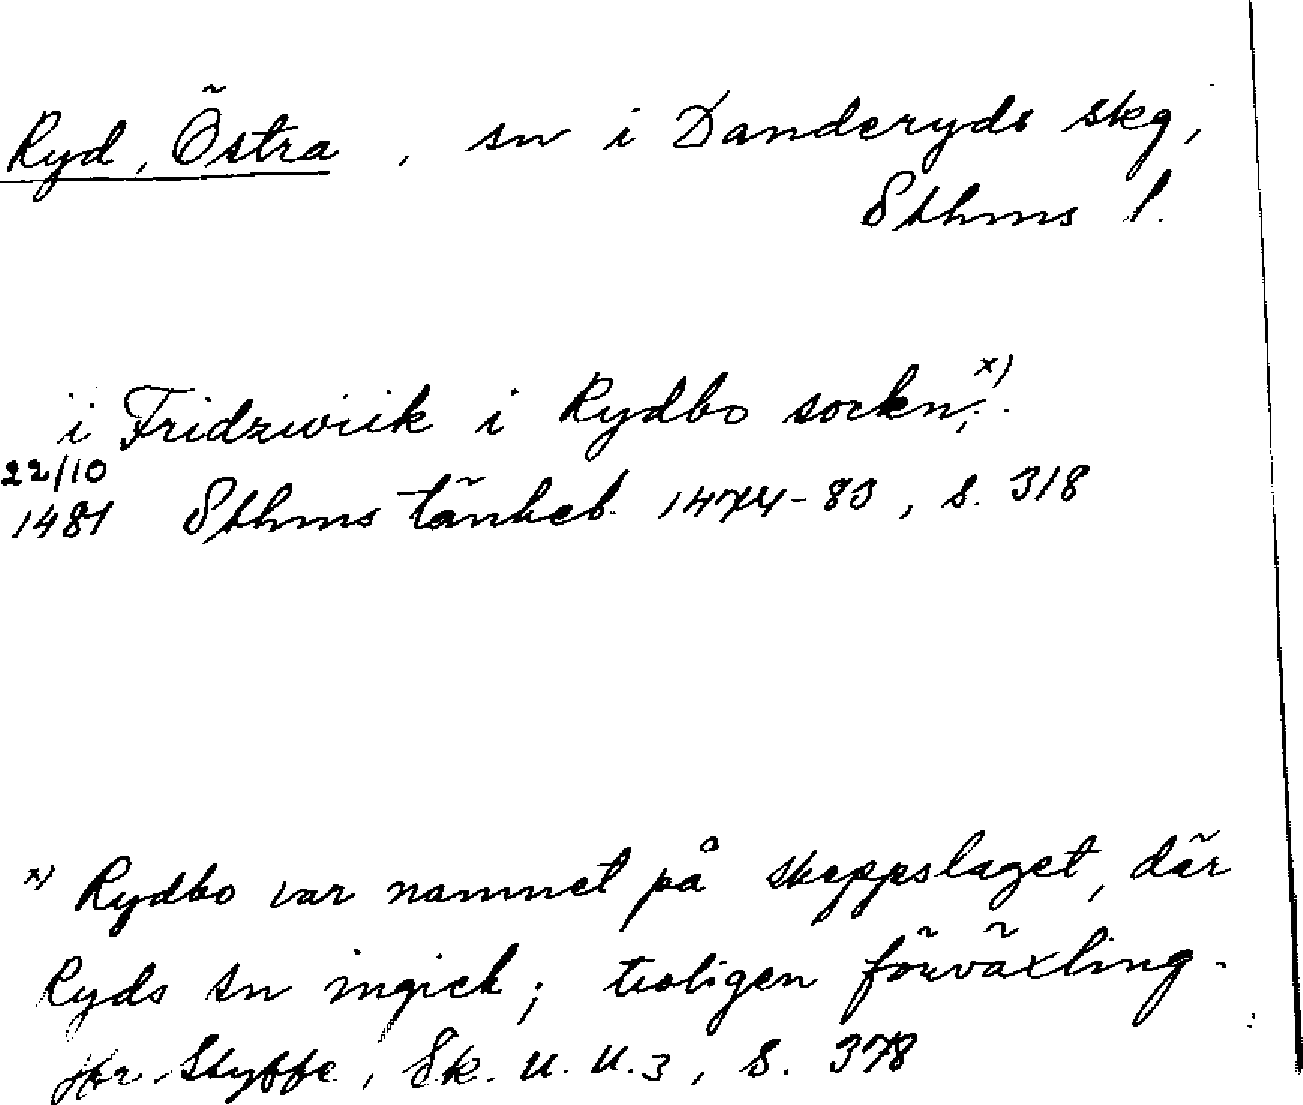 Ryd, Östra, sn i Danderyds skg,
Sthms l.
i Fridzwiik i Rydbo sockn.x)
22/10
1481 Sthms tänkeb. 1474-83, s. 318
x) Rydbo var namnet på skeppslaget, där
Ryds sn ingick; troligen förväxling.
Jfr Styffe, Sk. u. u. 3, s. 378